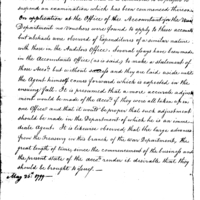 suspend an examination which has been commenced thereon
on application at the Office of the Accountant for the War
Department no vouchers were found to apply to these accounts
but abstracts were showed of Expenditures of a similar nature
with those in the Auditors Office. Several essays have been made
in the Accountants office to make a statement of
these Accots but without and they are laid aside until
the Agent himself came forward which is expected in the
ensuing fall. It is presumed that a more accurate adjust-
ment would be made of the Accots if they were all taken up in
Office and that it would be proper that such adjustment
should be made in the Department of which he is an imme-
diate Agent. It is likewise observed that the large advances
from the Treasury in this branch of the war Department, the
great length of time since the commencement of the business and
the present state of the Accots render it desirable that they
should be brought to
May 24th 1799